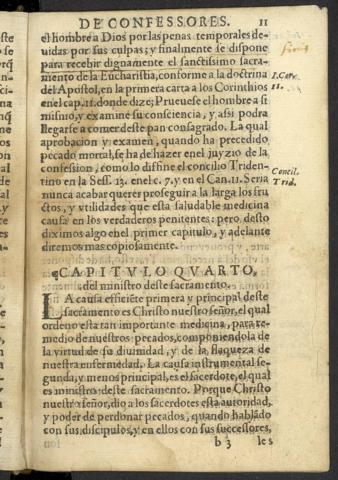 DE CONFESSORES. 11
el hombre a Dios por las penas temporales de-
uidas por sus culpas; y finalmente se dispone
para recibir dignamente el sanctissimo sacra-
mento de la Eucharistia, conforme a la doctrina
del Apostol, en la primera carta a los Corinthios
en el cap. 11. donde dize; Prueuese el hombre a si
mismo, y examine su consciencia, y assi podra
llegarse a comer deste pan consagrado. La qual
aprobacion y examen, quando ha precedido
pecado mortal, se ha de hazer en el juyzio de la
confession, como lo diffine el concilio Triden-
tino en la Sess. 13. en el c. 7. y en el Can. 11. Seria
nunca acabar querer proseguir a la larga los fru
ctos, y vtilidades que esta saludable medicina
causa en los verdaderos penitentes: pero desto
diximos algo en el primer capitulo, y adelante
diremos mas copiosamente.
I. Cor.
11.
Concil.
Trid.
CAPITVLO QVARTO,
del ministro deste sacramento.
LA causa efficiẽte primera y principal deste
sacramento es Christo nuestro señor, el qual
ordeno esta tan importante medicina, para re-
medio de nuestros pecados, componiendola de
la virtud de su diuinidad, y de la flaqueza de
nuestra enfermedad. La causa instrumental se-
gunda, y menos principal, es el sacerdote, el qual
es ministro deste sacramento. Porque Christo
nuestro señor, dio a los sacerdotes esta autoridad,
y poder de perdonar pecados, quando hablãdo
con sus discipulos, y en ellos con sus successores,
b 3 les